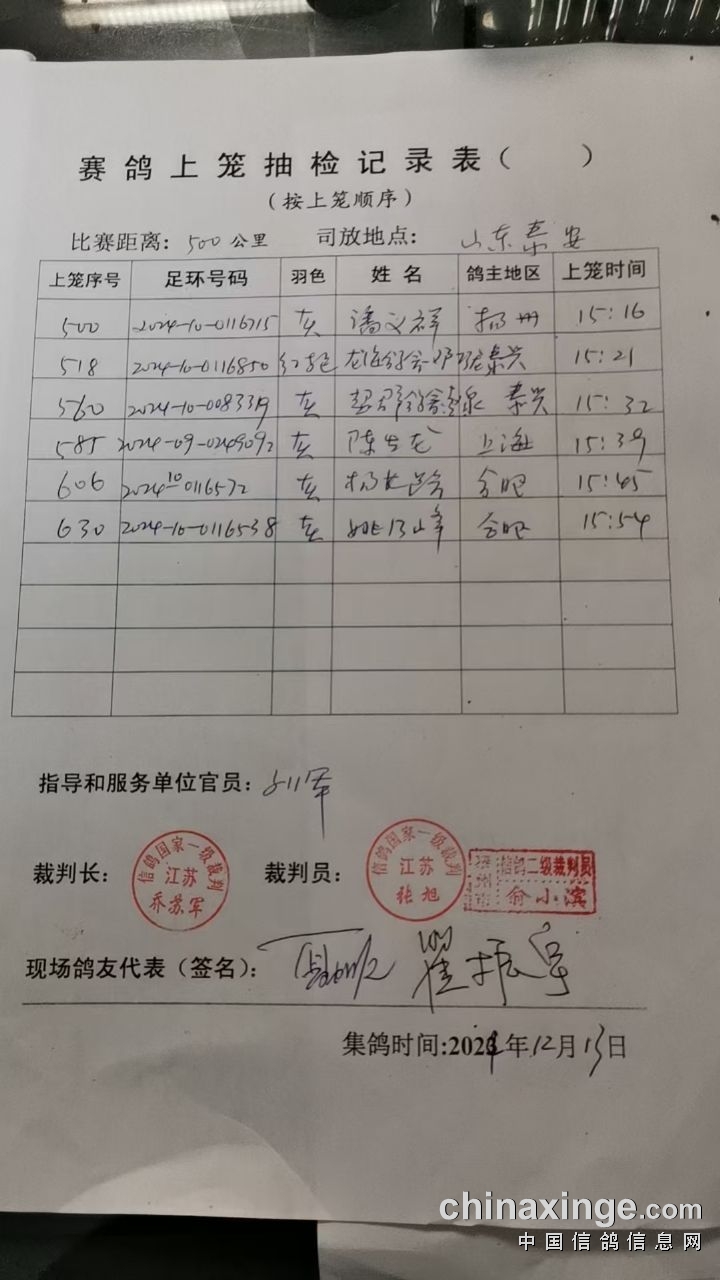 赛鸽上笼抽检记录表( )
(按上笼顺序)
比赛距离: 500 公里 司放地点: 山东泰安
上笼序号 足环号码 羽色 姓名 鸽主地区 上笼时间
500 2024-10-0116715 灰 潘义祥 扬州 15:16
518 2024-10-0116850 红轮 泰兴 15:21
560 2024-10-0083319 灰 泰兴 15:32
585 2024-09-0249092 灰 陈生龙 上海 15:39
606 2024-10-0116572 灰 合肥 15:45
630 2024-10-0116538 灰 姚乃峰 合肥 15:54
指导和服务单位官员:
裁判长: 信鸽国家一级裁判 江苏 乔苏军 裁判员: 信鸽国家一级裁判 江苏 张旭 信鸽二级裁判员 俞小滨
现场鸽友代表(签名): 翟振宇
集鸽时间:2024年12月13日
chinaxinge.com
中国信鸽信息网